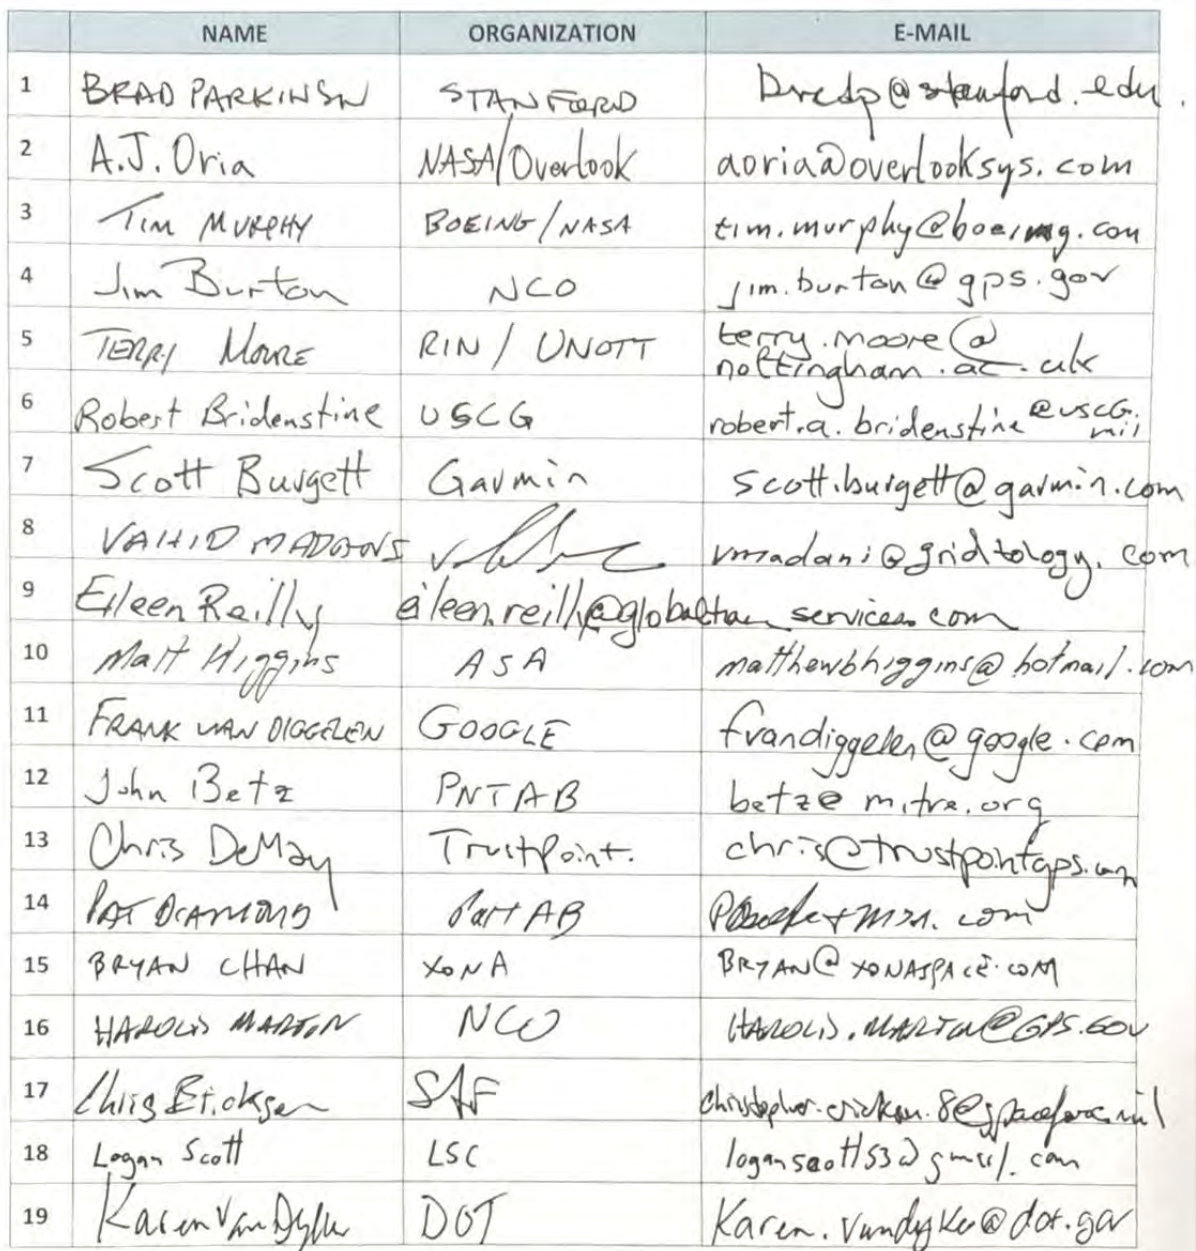 NAME ORGANIZATION E-MAIL
1 BRAD PARKINSON STANFORD @stanford.edu.
2 A.J. Oria NASA/Overlook aoria@overlooksys.com
3 TIM MURPHY BOEING/NASA tim.murphy@boeing.com
4 Jim Burton NCO jim.burton@gps.gov
5 TERRY MOORE RIN / UNOTT terry.moore@
nottingham.ac.uk
6 Robert Bridenstine USCG robert.a.bridenstine@USCG.
mil
7 Scott Burgett Garmin scott.burgett@garmin.com
8 VAHID vmadani@gridtology.com
9 Eileen Reilly
10 Matt Higgins ASA matthewbhiggins@hotmail.com
11 FRANK VAN DIGGELEN GOOGLE fvandiggelen@google.com
12 John Betz PNTAB betz@mitre.org
13 Chris DeMay TrustPoint. chris@trustpointgps.com
14 PAT DIAMOND
15 BRYAN CHAN XONA BRYAN@XONASPACE.COM
16 HAROLD MARTIN NCO HAROLD.MARTIN@GPS.GOV
17 Chris Erickson christopher.erickson.8@spaceforce.mil
18 Logan Scott LSC loganscott53@gmail.com
19 Karen Van Dyke DOT Karen.vandyke@dot.gov